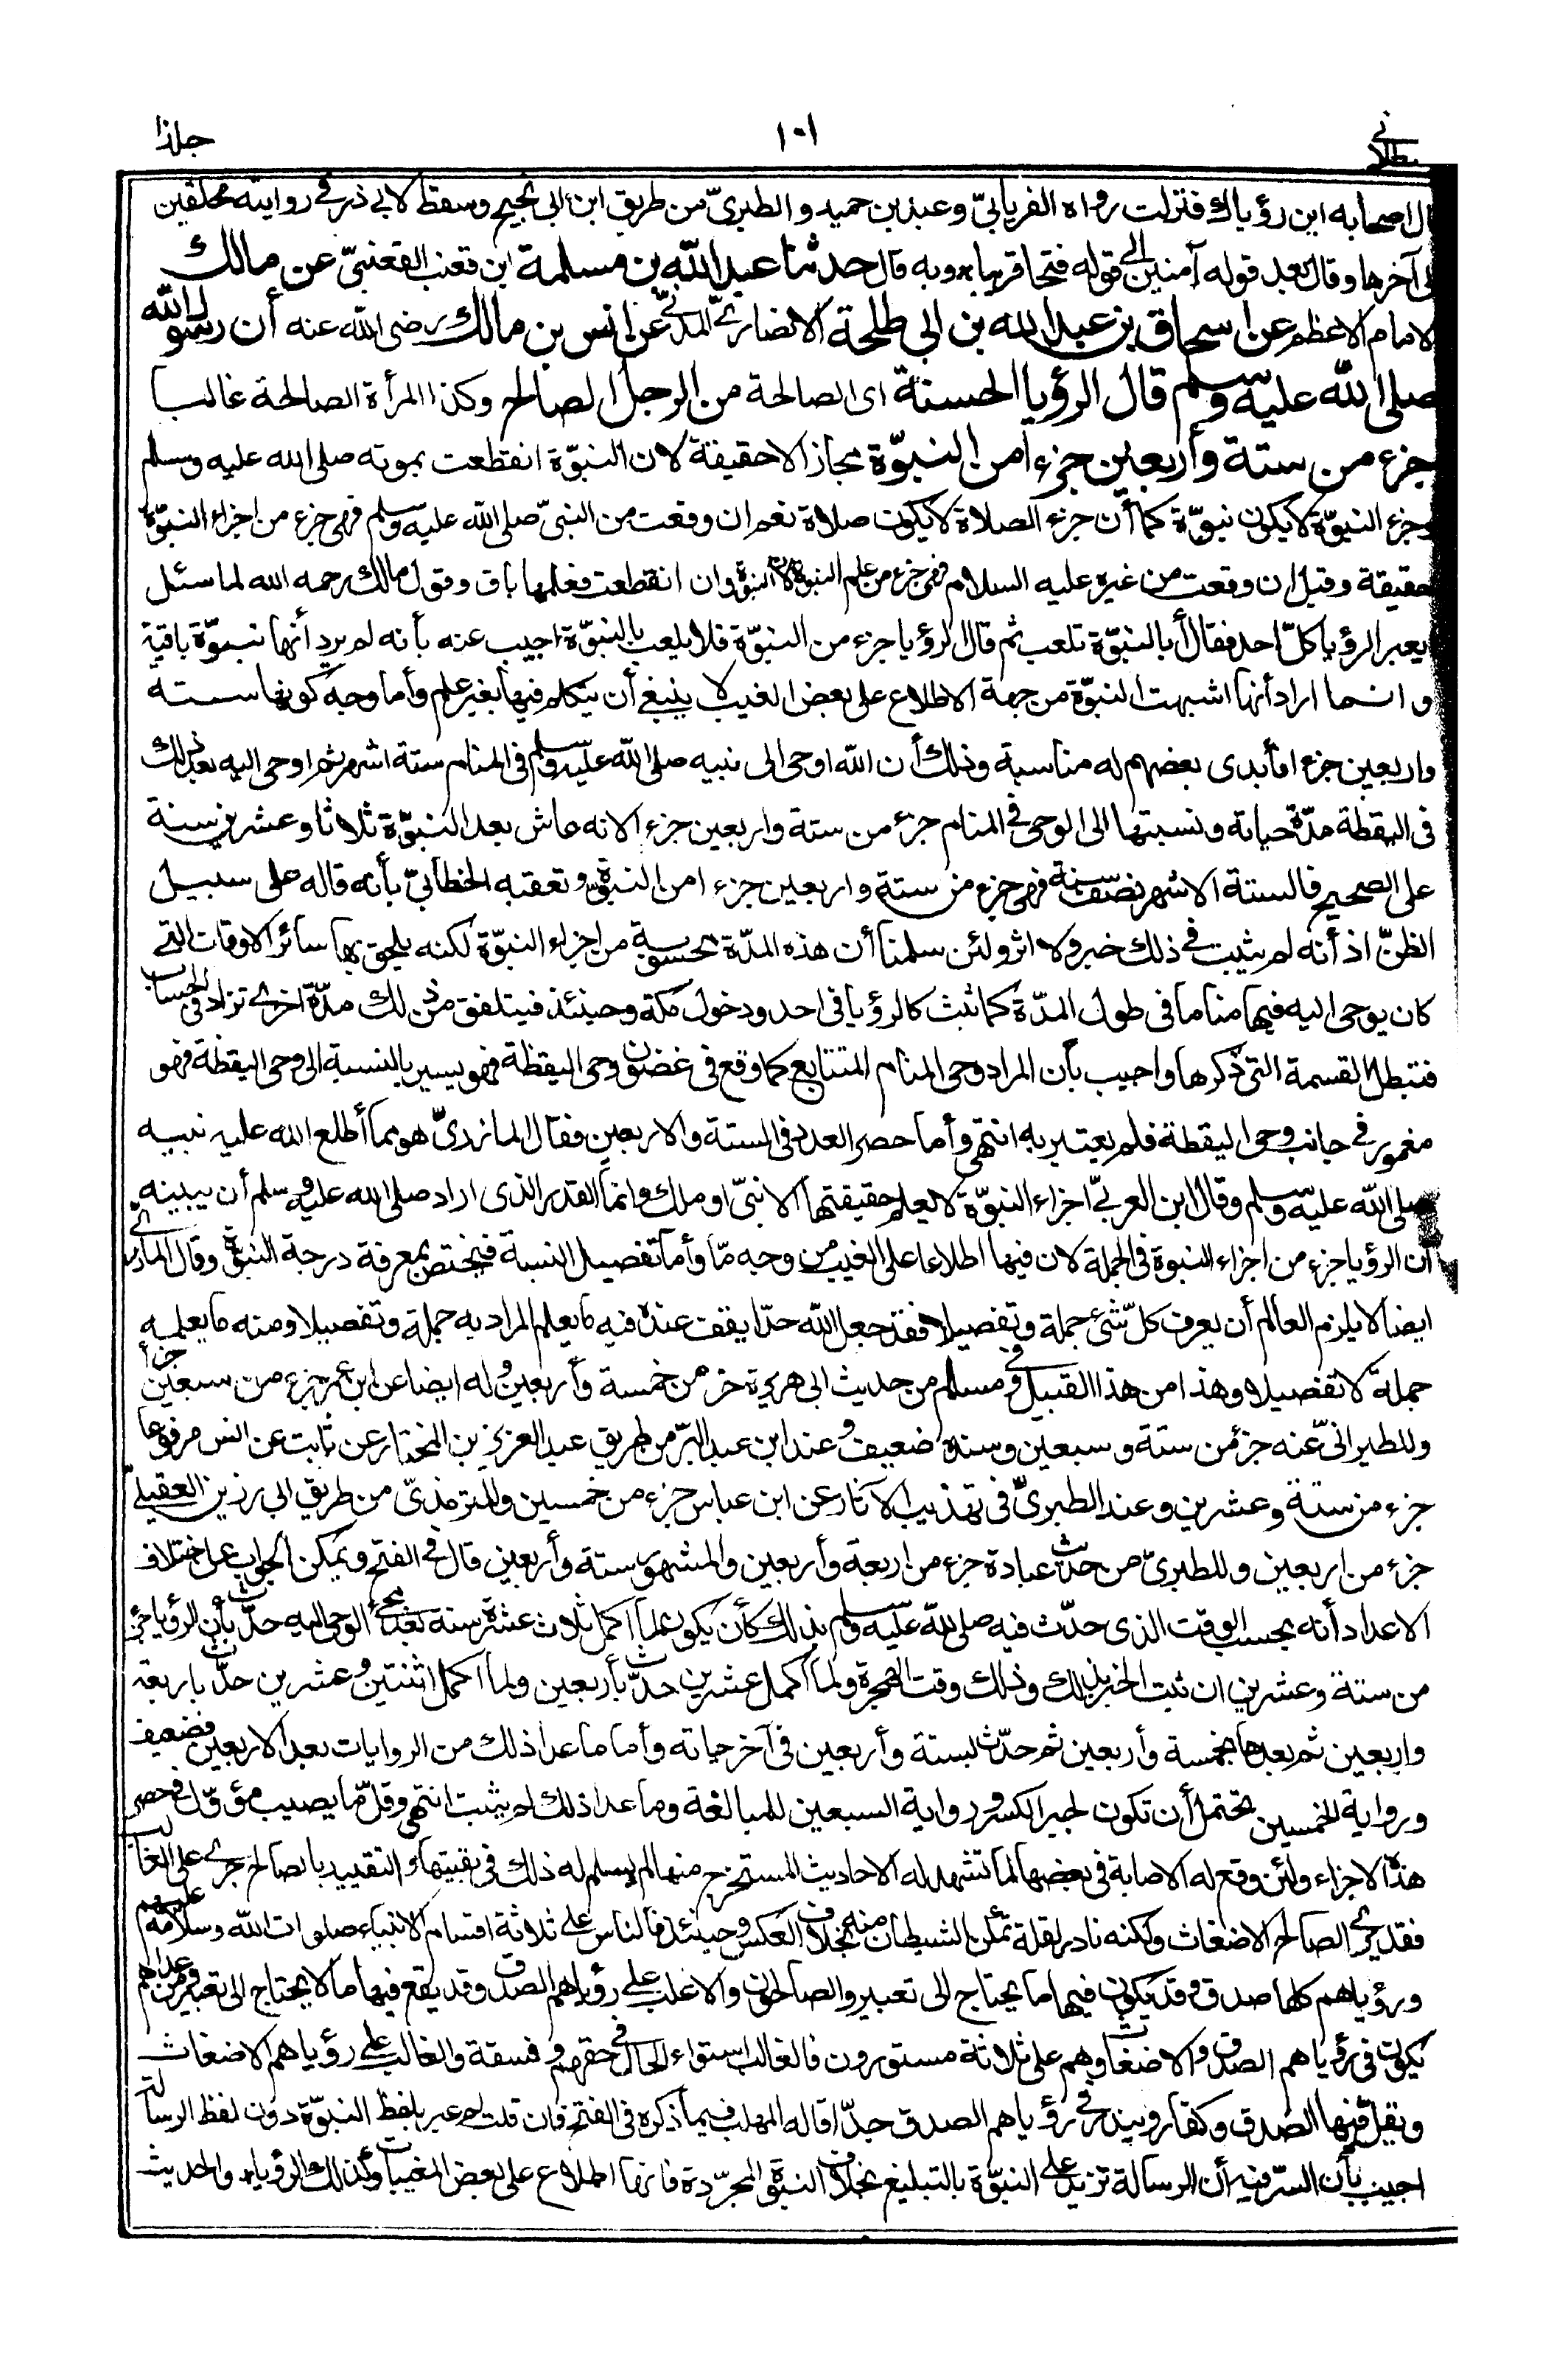 جلد١
١٠١
قال اصحابه اين رؤياك فنزلت رواه الفريابيّ وعبد بن حميد والطبريّ من طريق ابن ابي نجيح وسقط لابي ذر في روايته محلقين
الى آخرها وقال بعد قوله آمنين الى قوله فتحا قريبا * وبه قال حدثنا عبد الله بن مسلمة ابن قعنب القعنبيّ عن مالك
الامام الاعظم عن اسحاق بن عبد الله بن ابي طلحة الانصاريّ المدنيّ عن انس بن مالك رضى الله عنه أن رسول الله
صلى الله عليه وسلم قال الرؤيا الحسنة اى الصالحة من الرجل الصالح وكذا المرأة الصالحة غالبا
جزء من ستة وأربعين جزءا من النبوّة مجازا لاحقيقة لان النبوّة انقطعت بموته صلى الله عليه وسلم
وجزء النبوّة لايكون نبوّة كما أن جزء الصلاة لايكون صلاة نعم ان وقعت من النبىّ صلى الله عليه وسلم فهى جزء من اجزاء النبوّة
حقيقة وقيل ان وقعت من غيره عليه السلام فهى جزء من علم النبوة لان النبوة وان انقطعت فعلمها باق وقول مالك رحمه الله لما سئل
ايعبر الرؤيا كلّ احد فقال أبالنبوّة تلعب ثم قال الرؤيا جزء من النبوّة فلا يلعب بالنبوّة اجيب عنه بأنه لم يرد أنها نبوّة باقية
وانما اراد أنها اشبهت النبوّة من جهة الاطلاع على بعض الغيب لا ينبغي أن يتكلم فيها بغير علم وأما وجه كونها ستة
واربعين جزءا فأبدى بعضهم له مناسبة وذلك أن الله اوحى الى نبيه صلى الله عليه وسلم فى المنام ستة اشهر ثم اوحى اليه بعد ذلك
فى اليقظة مدّة حياته ونسبتها الى الوحى فى المنام جزء من ستة واربعين جزءا لانه عاش بعد النبوّة ثلاثا وعشرين سنة
على الصحيح فالستة الاشهر نصف سنة فهى جزء من ستة واربعين جزءا من النبوّة وتعقبه الخطابيّ بأنه قاله على سبيل
الظنّ اذ أنه لم يثبت في ذلك خبر ولا اثر ولئن سلمنا أن هذه المدّة محسوبة من اجزاء النبوّة لكنه يلحق بها سائر الاوقات التي
كان يوحى اليه فيها مناما فى طول المدّة كما ثبت كالرؤيا فى احد ودخول مكة وحينئذ فيتلفق من ذلك مدّة اخرى تزاد فى الحساب
فتبطل القسمة التى ذكرها واجيب بأن المراد وحى المنام المتتابع كما وقع فى غضون وحى اليقظة فهو يسير بالنسبة الى وحى اليقظة فهو
مغمور في جانب وحى اليقظة فلم يعتبر به انتهى وأما حصر العدد فى الستة والاربعين فقال المازريّ هو مما أطلع الله عليه نبيه
صلى الله عليه وسلم وقال ابن العربيّ اجزاء النبوّة لايعلم حقيقتها الا نبىّ او ملك وانما القدر الذى اراد صلى الله عليه وسلم أن يبينه
أن الرؤيا جزء من اجزاء النبوة فى الجملة لان فيها اطلاعا على الغيب من وجه مّا وأما تفصيل النسبة فيختص بمعرفة درجة النبوّة وقال المازريّ
ايضا لايلزم العالم أن يعرف كلّ شئ جملة وتفصيلا فقد جعل الله حدّا يقف عنده فيه مايعلم المراد به جملة وتفصيلا ومنه مايعلمه
جملة لاتفصيلا وهذا من هذا القبيل وفى مسلم من حديث ابى هريرة جزء من خمسة وأربعين وله ايضا عن ابن عمر جزء من سبعين جزأ
وللطبرانىّ عنه جزء من ستة وسبعين وسنده ضعيف وعند ابن عبد البرّ من طريق عبد العزيز بن المختار عن ثابت عن انس مرفوعا
جزء من ستة وعشرين وعند الطبريّ فى تهذيب الآثار عن ابن عباس جزء من خمسين وللترمذيّ من طريق ابى رزين العقيليّ
جزء من اربعين وللطبريّ من حديث عبادة جزء من اربعة وأربعين والمشهور ستة وأربعين قال فى الفتح ويمكن الجواب عن اختلاف
الاعداد أنه بحسب الوقت الذى حدّث فيه صلى الله عليه وسلم بذلك كأن يكون لما اكمل ثلاث عشرة سنة بعد مجئ الوحى اليه حدّث بأن الرؤيا جزء
من ستة وعشرين ان ثبت الخبر بذلك وذلك وقت الهجرة ولما اكمل عشرين حدّث بأربعين ولما اكمل اثنتين وعشرين حدّث باربعة
واربعين ثم بعدها بخمسة وأربعين ثم حدّث بستة وأربعين فى آخر حياته وأما ما عدا ذلك من الروايات بعد الاربعين فضعيف
ورواية الخمسين يحتمل أن تكون لجبر الكسر ورواية السبعين للمبالغة وما عدا ذلك لم يثبت انتهى وقلّ مّا يصيب مؤوّل فى حصر
هذه الاجزاء ولئن وقع له الاصابة فى بعضها لما تشهد له الاحاديث المستخرج منها لم يسلم له ذلك فى بقيتها والتقييد بالصالح جرى على الغالب
فقد يرى الصالح الاضغاث ولكنه نادر لقلة تمكّن الشيطان منه بخلاف العكس وحينئذ فالناس على ثلاثة اقسام الانبياء صلوات الله وسلامه عليهم
ورؤياهم كلها صدق وقد يكون فيها ما يحتاج الى تعبير والصالحون والاغلب على رؤياهم الصدق وقد يقع فيها ما لا يحتاج الى تعبير ومن عداهم
يكون فى رؤياهم الصدق والاضغاث وهم على ثلاثة مستورون فالغالب استواء الحال فى حقهم وفسقة والغالب على رؤياهم الاضغاث
ويقلّ فيها الصدق وكفار ويندر في رؤياهم الصدق جدّا قاله المهلب فيما ذكره فى الفتح فان قلت لم عبر بلفظ النبوّة دون لفظ الرسالة
اجيب بأن السرّ فيه أن الرسالة تزيد على النبوّة بالتبليغ بخلاف النبوّة المجرّدة فانها اطلاع على بعض المغيبات وكذلك الرؤيا * والحديث